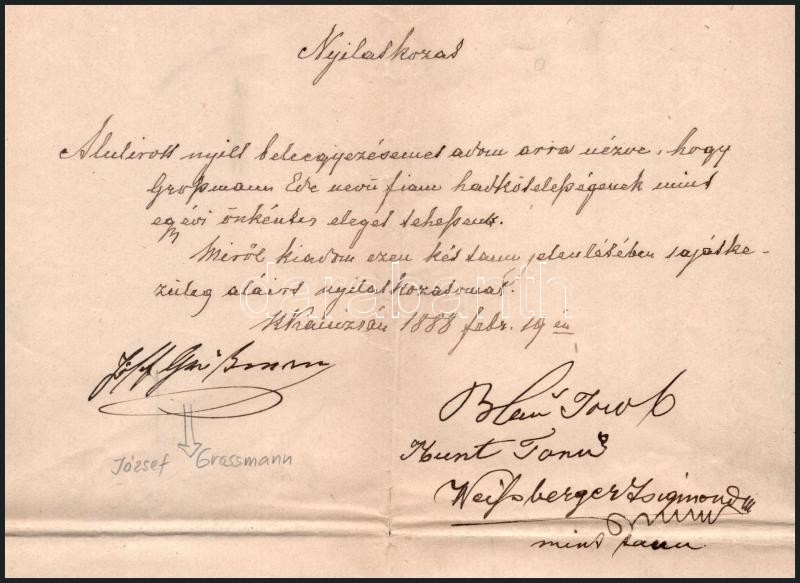 Nyilatkozat
Alulirott nyilt beleegyezésemet adom arra nézve, hogy
Großmann Ede nevű fiam hadkötelességének mint
egyévi önkéntes eleget tehessen.
Miről kiadom ezen két tanu jelenlétében sajátke-
zűleg aláirt nyilatkozatomat.
NKanizsán 1888 febr. 19 én
darabanth
Blau
mint Tanu
József Grassmann
Weißberger Zsigmond
mint tanu